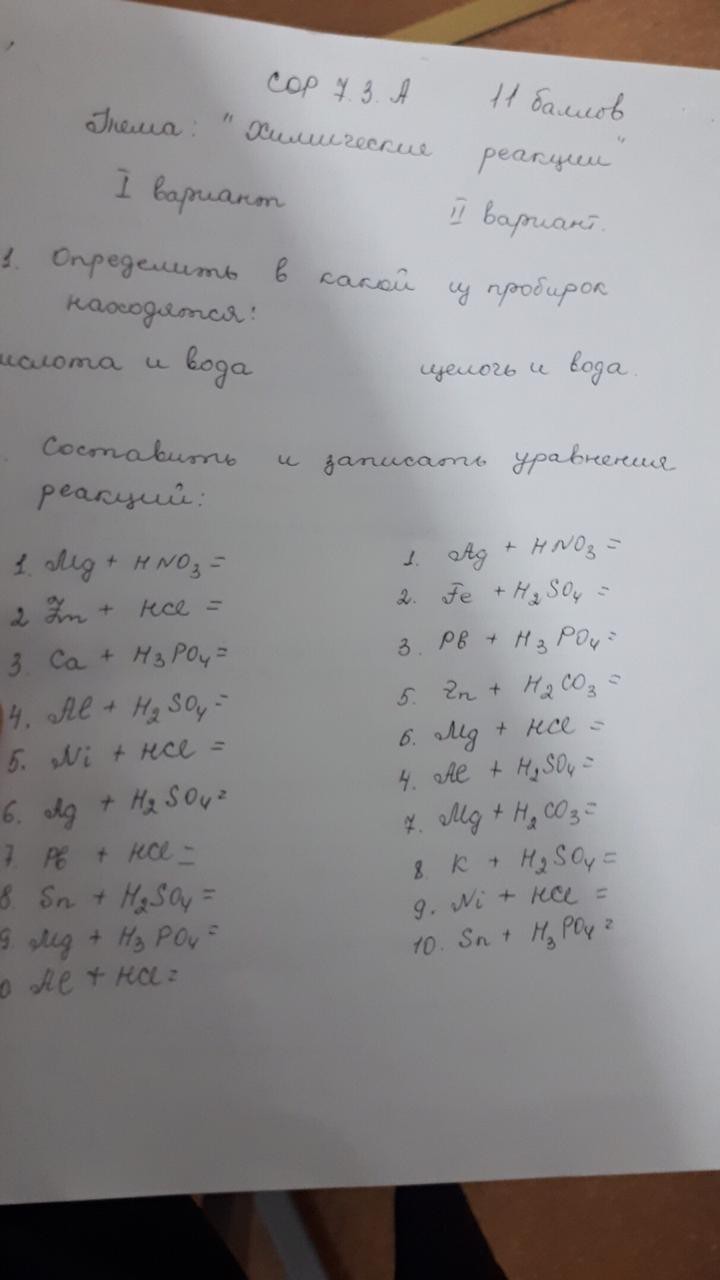 СОР 7.3.А 11 баллов
Тема: "Химические реакции"
I вариант II вариант.
1. Определить в какой из пробирок
находятся:
ислота и вода щелочь и вода.
Составить и записать уравнения
реакций:
1. Mg + HNO3 = 1. Ag + HNO3 =
2 Zn + HCl = 2. Fe + H2SO4 =
3. Ca + H3PO4 = 3. Pb + H3PO4 =
4. Al + H2SO4 = 5. Zn + H2CO3 =
5. Ni + HCl = 6. Mg + HCl =
6. Ag + H2SO4 = 4. Al + H2SO4 =
7. Pb + HCl = 7. Mg + H2CO3 =
8. Sn + H2SO4 = 8. K + H2SO4 =
9. Mg + H3PO4 = 9. Ni + HCl =
0 Al + HCl = 10. Sn + H3PO4 =